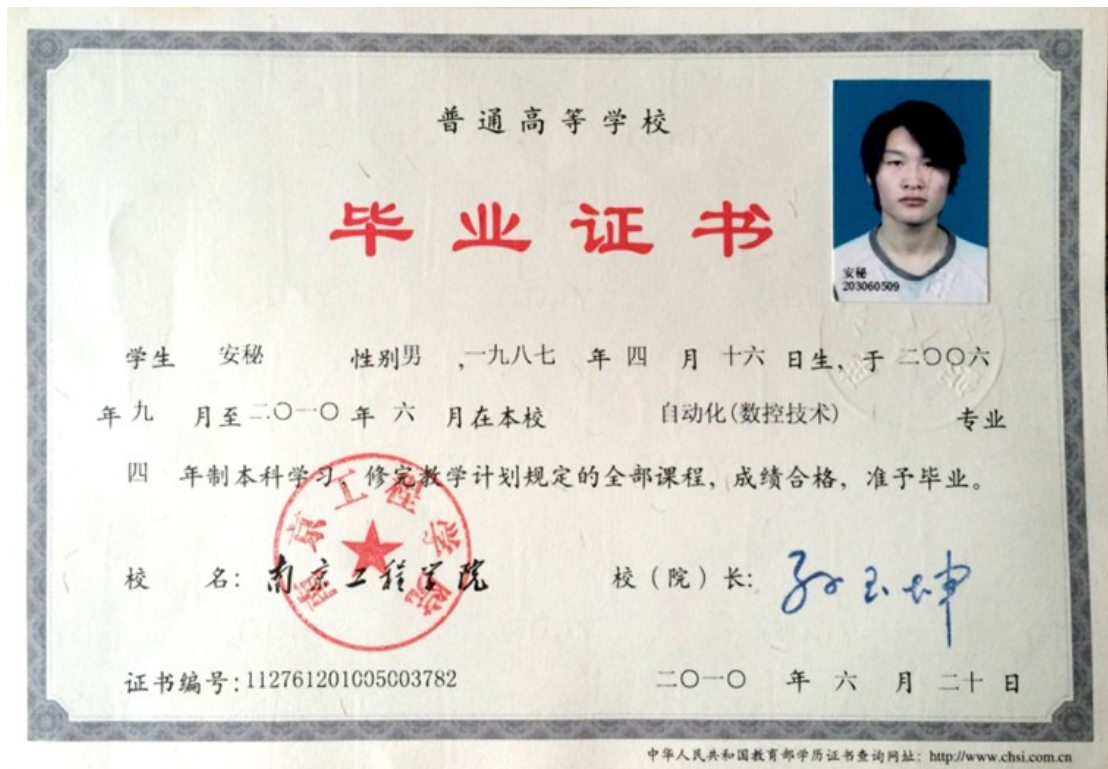 普通高等学校
毕业证书
安秘
203060509
学生 安秘 性别男 ,一九八七 年 四 月 十六 日生, 于 二〇〇六
年 九 月至 二〇一〇 年 六 月在本校 自动化(数控技术) 专业
四 年制本科学习, 修完教学计划规定的全部课程, 成绩合格, 准予毕业。
南京工程学院
校 名: 南京工程学院 校(院)长: 孙玉坤
证书编号:112761201005003782 二〇一〇 年 六 月 二十 日
中华人民共和国教育部学历证书查询网址: http://www.chsi.com.cn